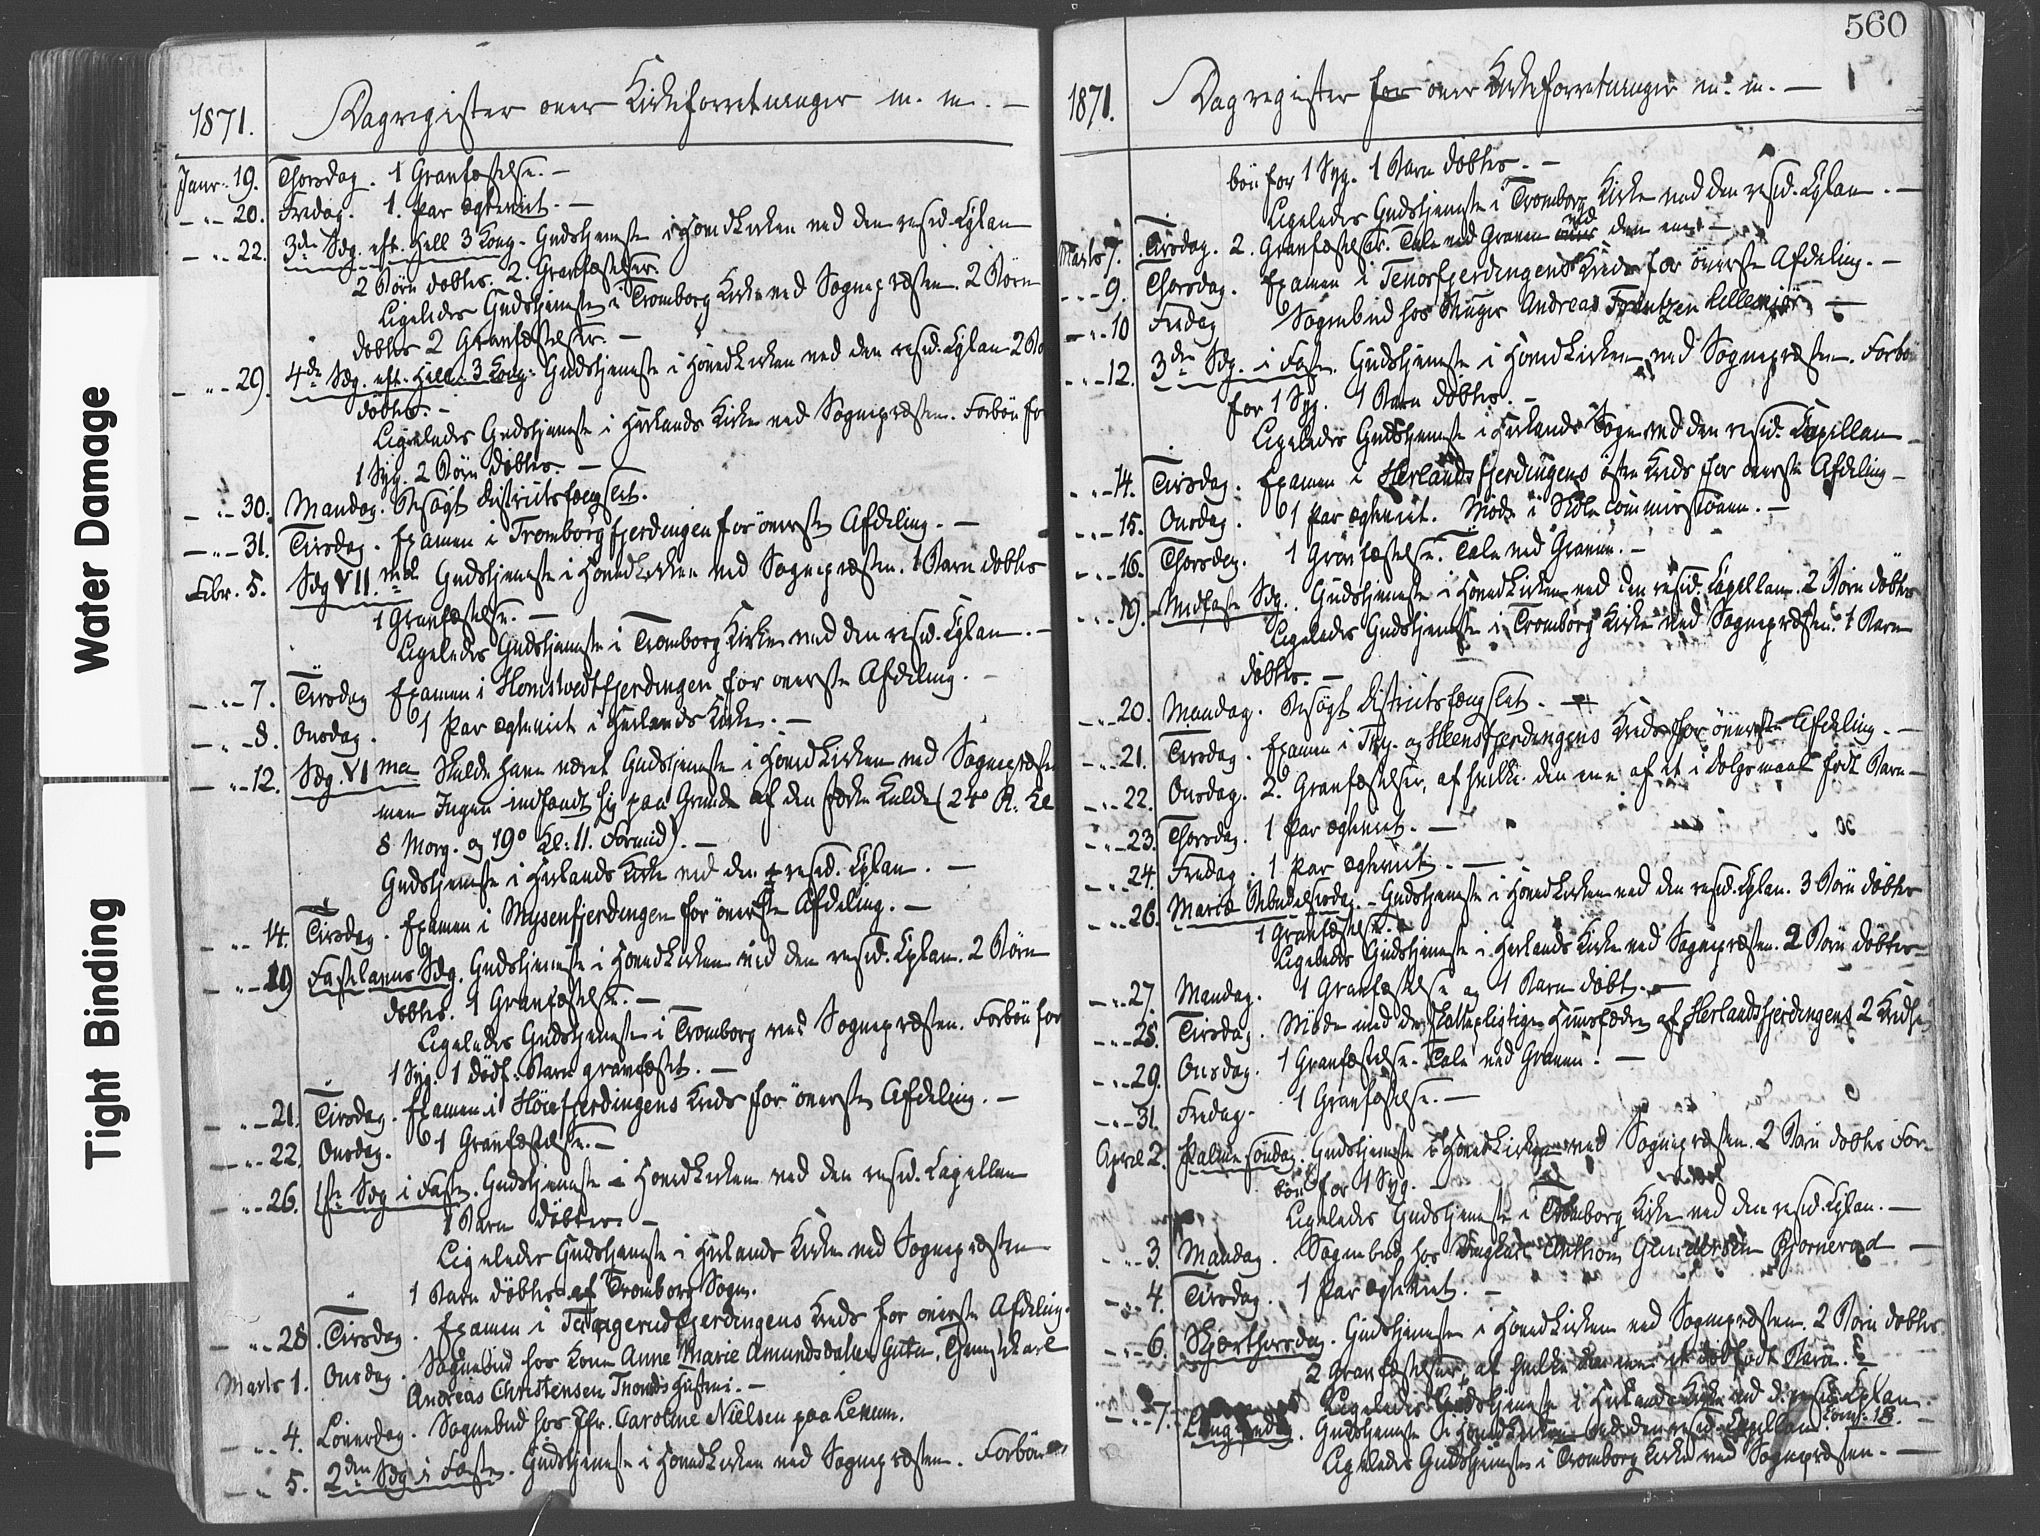 Water Damage
Tight Binding
1871. Dagregister over Kirkeforretninger m. m. —
Janr. 19. Thorsdag. 1 Gravfæstelse. —
— „ — 20. Fredag. 1. Par ægteviet. —
— „ — 22. 3die Sdg. eft. Hell 3 Kong. Gudstjeneste i Hovedkirken ved den resid. Cplan
2 Börn döbtes. 2. Gravfæstelser.
Ligeledes Gudstjeneste i Tromborg Kirke ved Sognepræsten. 2 Börn
döbtes 2 Gravfæstelser. —
— „ — 29. 4de Sdg. eft. Hell. 3 Kong. Gudstjeneste i Hovedkirken ved den resid. Cplan 2 Bö
döbtes. —
Ligeledes Gudstjeneste i Herlands Kirke ved Sognepræsten. Forbön for
1 Syg. 2 Börn döbtes. —
— „ — 30. Mandag. Besögt Districtsfængslet.
— „ — 31. Tirsdag. Examen i Tromborgfjerdingen for överste Afdeling. —
Febr. 5. Sdg VII.ma Gudstjeneste i Hovedkirken ved Sognepræsten. 1 Barn döbtes
1 Gravfæstelse. —
Ligeledes Gudstjeneste i Tromborg Kirke ved den resid. Cplan. —
— „ — 7. Tirsdag Examen i Homstvedtfjerdingen for överste Afdeling. —
— „ — 8. Onsdag. 1 Par ægteviet i Herlands Kirke. —
— „ — 12. Sdg. VI ma Skulde have været Gudstjeneste i Hovedkirken ved Sognepræsten
men Ingen indfandt sig paa Grund af den stærke Kulde (24° R. Kl
8 Morg. og 19° Kl: 11. Formid). —
Gudstjeneste i Herlands Kirke ved den resid. Cplan. —
— „ — 14. Tirsdag. Examen i Mysenfjerdingen for överste Afdeling. —
— „ — 19 Fastelavns Sdg. Gudstjeneste i Hovedkirken ved den resid. Cplan. 2 Börn
döbtes. 1 Gravfæstelse. —
Ligeledes Gudstjeneste i Tromborg ved Sognepræsten. Forbön for
1 Syg. 1 dödf. Barn gravfæstet. —
— „ — 21. Tirsdag. Examen i Höiefjerdingens Kreds for överste Afdeling. —
— „ — 22. Onsdag. 1 Gravfæstelse. —
— „ — 26. 1ste Sdg i Faste. Gudstjeneste i Hovedkirken ved den resid. Capellan
1 Barn döbtes. —
Ligeledes Gudstjeneste i Herlands Kirke ved Sognepræsten
1 Barn döbtes af Tromborg Sogn.
— „ — 28. Tirsdag. Examen i fjerdingens Kreds for överste Afdeling.
Marts 1. Onsdag. Sognebud hos Kone Anne Marie Amundsdatter
Andreas Christensen Hustru. —
— „ — 4. Löverdag. Sognebud hos Jfr. Caroline Nielsen paa
— „ — 5. 2den Sdg i Faste. Gudstjeneste i Hovedkirken ved Sognepræsten. Forbön
560
1871. Dagregister for over Kirkeforretninger m. m. —
bön for 1 Syg. 1 Barn döbtes. —
Ligeledes Gudstjeneste i Tromborg Kirke ved den resid. Cplan. —
Marts 7. Tirsdag. 2. Gravfæstelser. Tale ved Graven ved den ene —
— „ — 9. Thorsdag. Examen i Tenorfjerdingens Kreds for överste Afdeling. —
— „ — 10 Fredag Sognebud hos Andreas Frantzen —
— „ — 12. 3die Sdg. i Faste. Gudstjeneste i Hovedkirken ved Sognepræsten. Forbön
for 1 Syg. 1 Barn döbtes. —
Ligeledes Gudstjeneste i Herlands Sogn ved den resid. Capellan
— „ — 14. Tirsdag. Examen i Herlandsfjerdingens östre Kreds for överste Afdeling —
— „ — 15. Onsdag. 1 Par ægteviet. Möde i Skolecommissionen. —
— „ — 16. Thorsdag. 1 Gravfæstelse. Tale ved Graven. —
— „ — 19. Midfaste Sdg. Gudstjeneste i Hovedkirken ved den resid. Capellan. 2 Börn döbtes
Ligeledes Gudstjeneste i Tromborg Kirke ved Sognepræsten. 1 Barn
döbtes. —
— „ — 20. Mandag. Besögt Districtsfængslet. —
— „ — 21. Tirsdag. Examen i og Heensfjerdingens Kreds for överste Afdeling. —
— „ — 22. Onsdag. 2. Gravfæstelser, af hvilke den ene af et i Dölgsmaal födt Barn —
— „ — 23. Thorsdag. 1 Par ægteviet. —
— „ — 24. Fredag. 1 Par ægteviet. —
— „ — 26. Mariæ Bebudelsesdag. Gudstjeneste i Hovedkirken ved den resid. Cplan. 3 Börn döbtes
1 Gravfæstelse.
Ligeledes Gudstjeneste i Herlands Kirke ved Sognepræsten. 2 Börn döbtes
— „ — 27. Mandag. 1 Gravfæstelse og 1 Barn döbt. —
— „ — 28. Tirsdag. Möde med de skattepligtige Huusfædre af Herlandsfjerdingens 2 Kredse
— „ — 29. Onsdag. 1 Gravfæstelse. Tale ved Graven. —
— „ — 31. Fredag. 1 Gravfæstelse. —
April 2. Palme Söndag. Gudstjeneste i Hovedkirken ved Sognepræsten. 2 Börn döbtes For-
bön for 1 Syg. —
Ligeledes Gudstjeneste i Tromborg Kirke ved den resid. Cplan. —
— „ — 3. Mandag. Sognebud hos Ungkarl Anthon Gundersen Bjornerød —
— „ — 4. Tirsdag. 1 Par ægteviet. —
— „ — 6. Skjærthorsdag. Gudstjeneste i Hovedkirken ved Sognepræsten. 2 Börn döbtes
2 Gravfæstelser, af hvilke den ene et dödfödt Barn.
Ligeledes Gudstjeneste i Herlands Kirke ved d. resid. Cplan.
— „ — 7. Langfredag. Gudstjeneste i Hovedkirken ved den resid. Capellan. Comf. 18. —
Ligeledes Gudstjeneste i Tromborg Kirke ved Sognepræsten. —